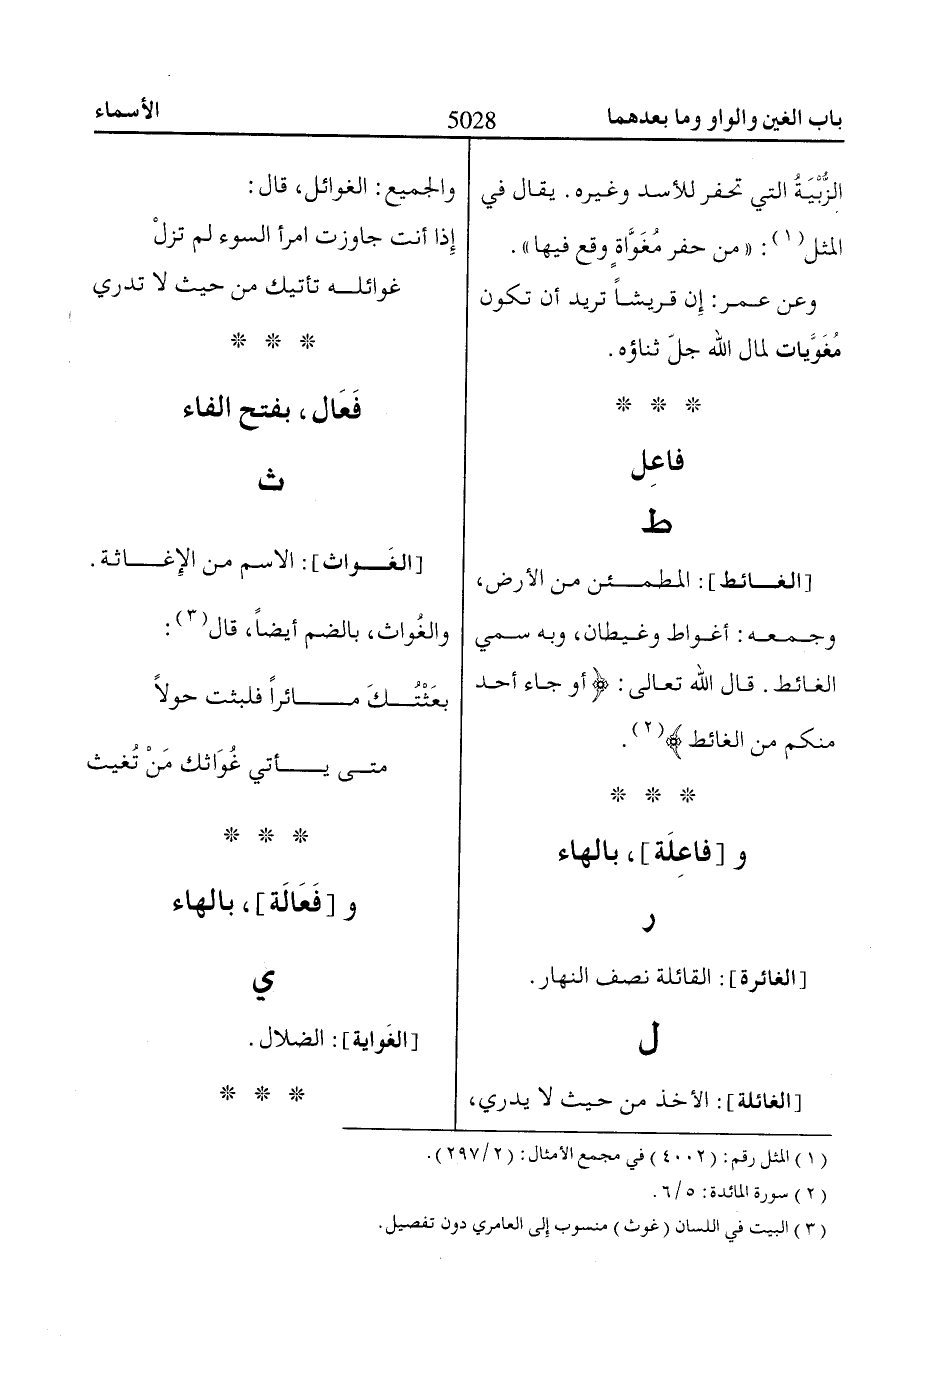 باب الغين والواو وما بعدهما 5028 الأسماء
الزُّبْيَةُ التي تحفر للأسد وغيره. يقال في
المثل(١): «من حفر مُغَوَّاةٍ وقع فيها».
وعن عمر: إن قريشاً تريد أن تكون
مُغَوَّيات لمال الله جلّ ثناؤه.
* * *
فاعِل
ط
[الغائط]: المطمئن من الأرض،
وجمعه: أغواط وغيطان، وبه سمي
الغائط. قال الله تعالى: ﴿أو جاء أحد
منكم من الغائط﴾(٢).
* * *
و [فاعِلَة]، بالهاء
ر
[الغائرة]: القائلة نصف النهار.
ل
[الغائلة]: الأخذ من حيث لا يدري،
والجميع: الغوائل، قال:
إذا أنت جاوزت امرأ السوء لم تزلْ
غوائله تأتيك من حيث لا تدري
* * *
فَعَال، بفتح الفاء
ث
[الغَواث]: الاسم من الإغاثة.
والغُواث، بالضم أيضاً، قال(٣):
بعَثْتُكَ مائراً فلبثت حولاً
متى يأتي غُوَاثك مَنْ تُغيث
* * *
و [فَعَالَة]، بالهاء
ي
[الغَواية]: الضلال.
* * *
(١) المثل رقم: (٤٠٠٢) في مجمع الأمثال: (٢/ ٢٩٧).
(٢) سورة المائدة: ٥/ ٦.
(٣) البيت في اللسان (غوث) منسوب إلى العامري دون تفصيل.